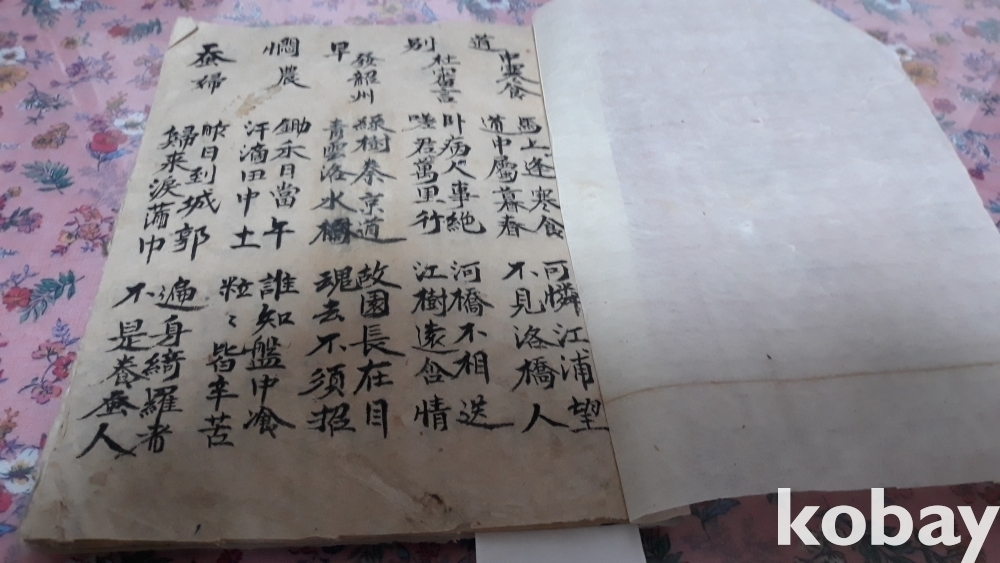 道中寒食
馬上逢寒食
道中屬暮春
可憐江浦望
不見洛橋人
別杜審言
卧病人事絶
嗟君萬里行
河橋不相送
江樹遠含情
早發韶州
綠樹秦京道
青雲洛水橋
故園長在目
魂去不須招
憫農
鋤禾日當午
汗滴田中土
誰知盤中飡
粒〻皆辛苦
蚕婦
昨日到城郭
歸來淚滿巾
遍身綺羅者
不是養蚕人
kobay